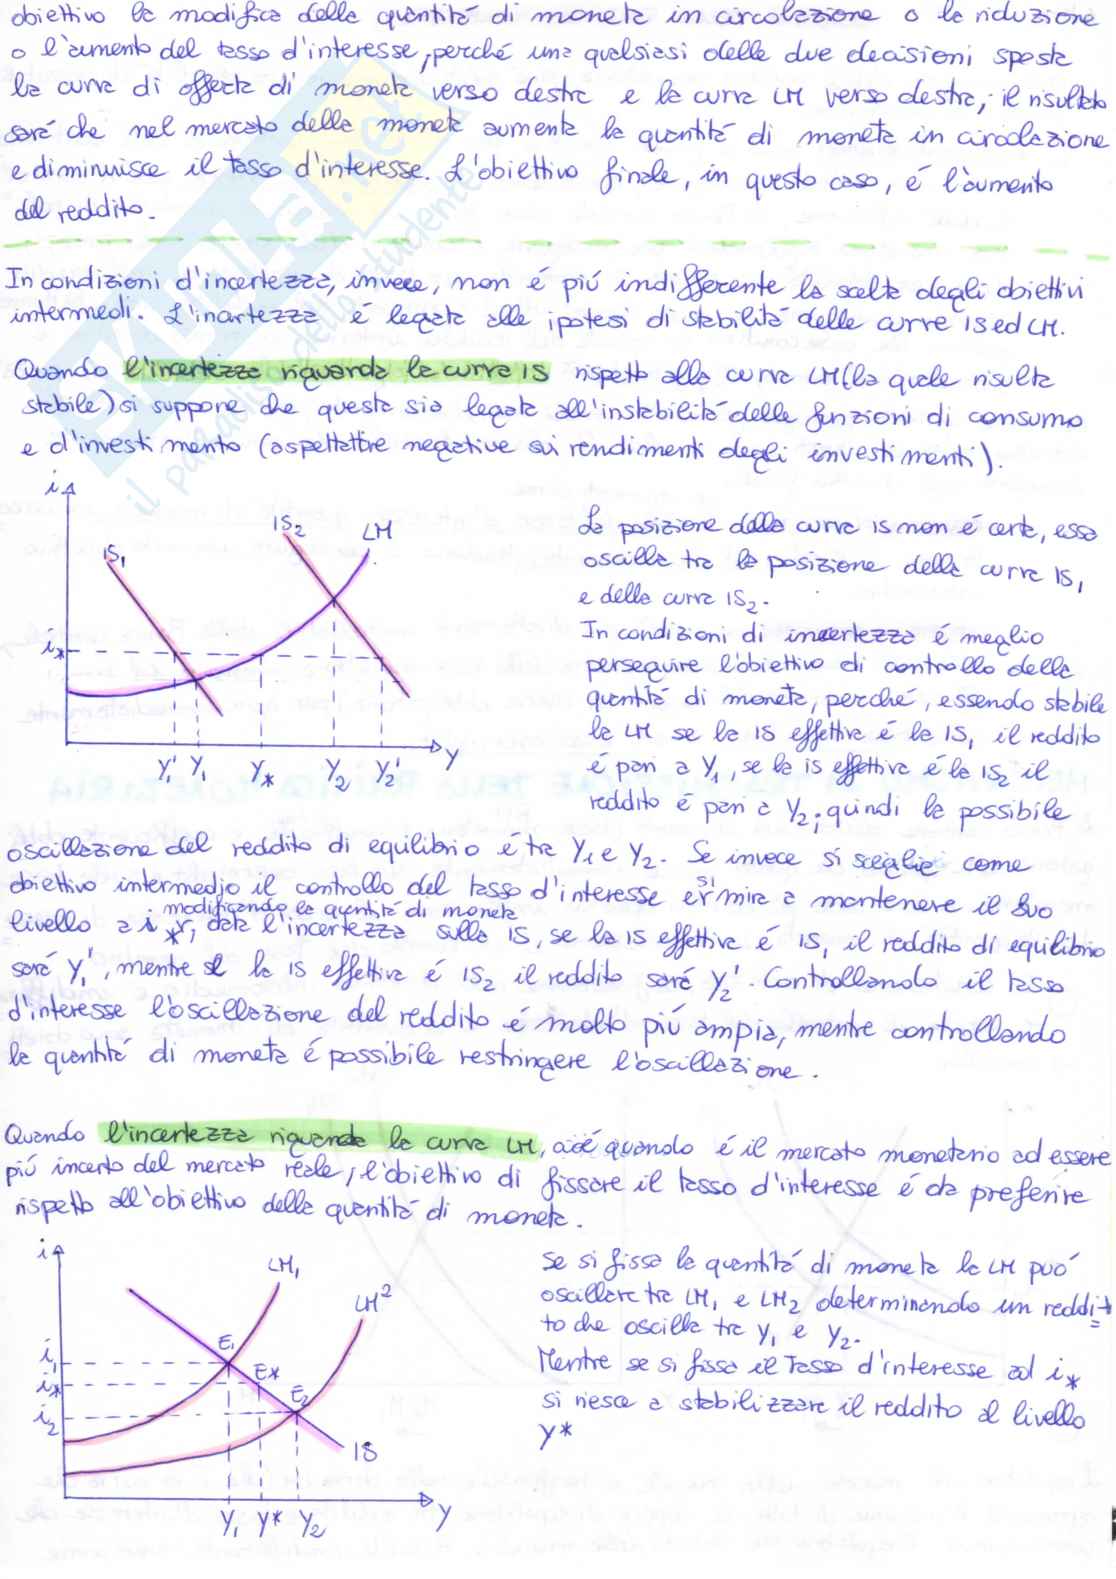 obiettivo la modifica della quantità di moneta in circolazione o la riduzione
o l'aumento del tasso d'interesse, perché una qualsiasi delle due decisioni sposta
la curva di offerta di moneta verso destra e la curva LM verso destra; il risultato
sarà che nel mercato della moneta aumenta la quantità di moneta in circolazione
e diminuisce il tasso d'interesse. L'obiettivo finale, in questo caso, é l'aumento
del reddito.
SKUOLA.net
il paradiso dello studente
In condizioni d'incertezza, invece, non é più indifferente la scelta degli obiettivi
intermedi. L'incertezza é legata alle ipotesi di stabilità delle curve IS ed LM.
Quando l'incertezza riguarda la curva IS rispetto alla curva LM (la quale risulta
stabile) si suppone che questa sia legata all'instabilità delle funzioni di consumo
e d'investimento (aspettative negative sui rendimenti degli investimenti).
i
IS1
IS2
LM
i*
Y1' Y1 Y* Y2 Y2' Y
La posizione della curva IS non é certa, essa
oscilla tra la posizione della curva IS1
e della curva IS2.
In condizioni di incertezza é meglio
perseguire l'obiettivo di controllo della
quantità di moneta, perché, essendo stabile
la LM se la IS effettiva é la IS1 il reddito
é pari a Y1, se la is effettiva é la IS2 il
reddito é pari a Y2; quindi la possibile
oscillazione del reddito di equilibrio é tra Y1 e Y2. Se invece si sceglie come
obiettivo intermedio il controllo del tasso d'interesse e si mira a mantenere il suo
modificando la quantità di moneta
livello a i*, data l'incertezza sulla IS, se la IS effettiva é IS1 il reddito di equilibrio
sarà Y1', mentre se la IS effettiva é IS2 il reddito sarà Y2'. Controllando il tasso
d'interesse l'oscillazione del reddito é molto più ampia, mentre controllando
la quantità di moneta é possibile restringere l'oscillazione.
Quando l'incertezza riguarda la curva LM, cioé quando é il mercato monetario ad essere
più incerto del mercato reale, l'obiettivo di fissare il tasso d'interesse é da preferire
rispetto all'obiettivo della quantità di moneta.
i
LM1
LM2
E1
E*
E2
i1
i*
i2
IS
Y1 Y* Y2 Y
Se si fissa la quantità di moneta la LM può
oscillare tra LM1 e LM2 determinando un reddi-
to che oscilla tra Y1 e Y2.
Mentre se si fissa il tasso d'interesse ad i*
si riesce a stabilizzare il reddito al livello
Y*